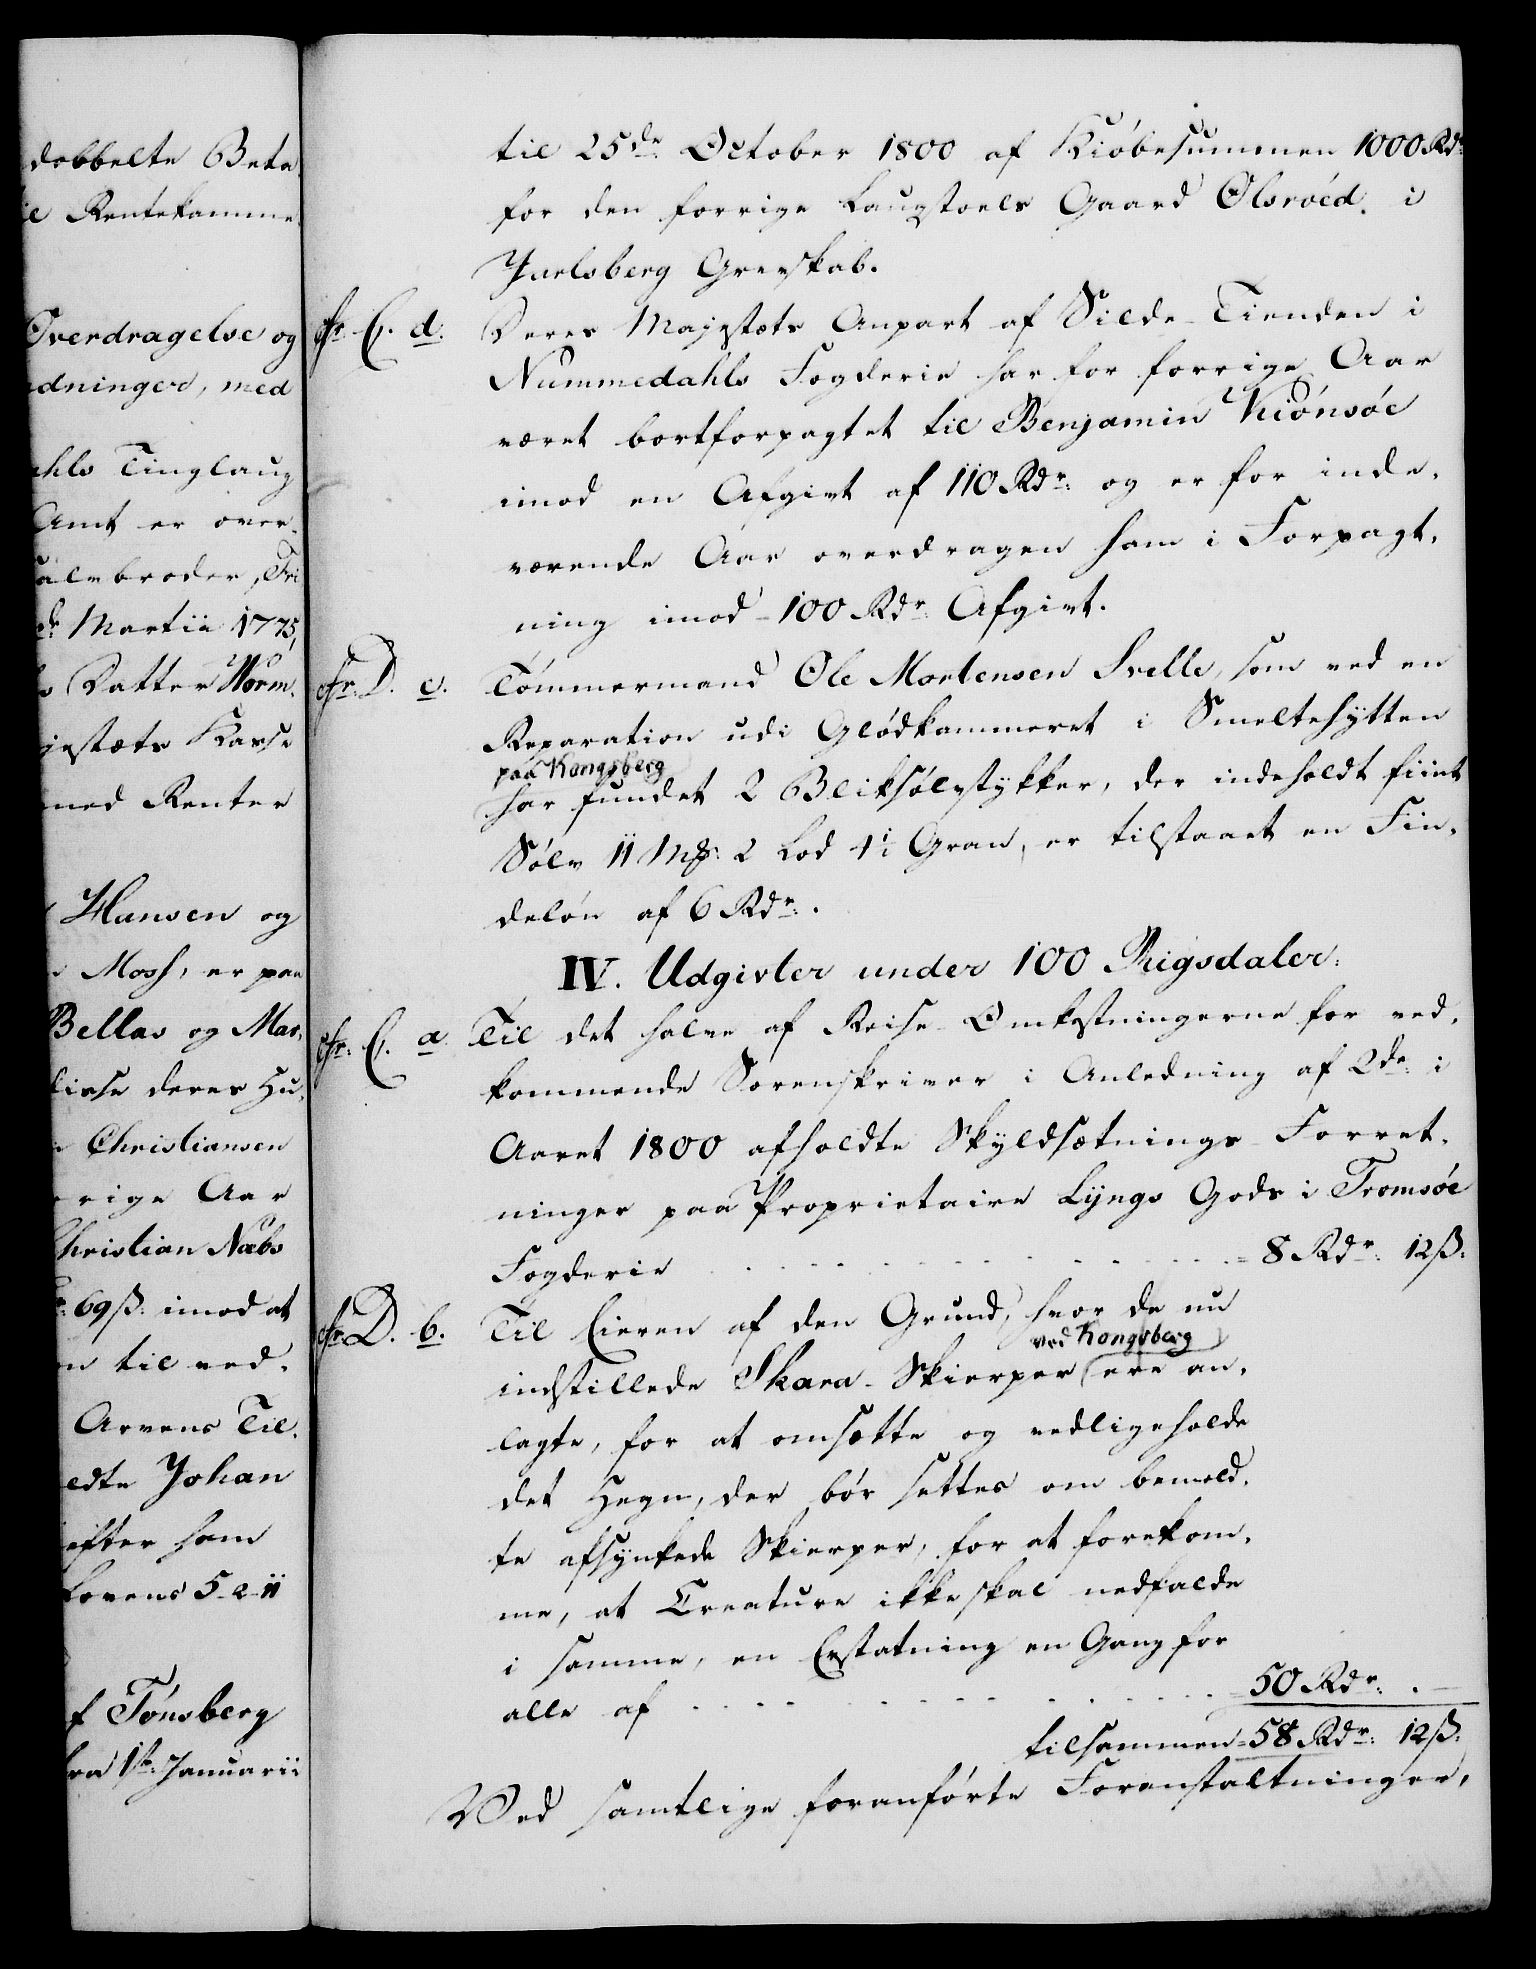 dobbelte Beta
Rentekamme
Overdragelse og
dninger, med
ahls Tinglaug
Amt er over-
alvbroder, Fri
Martii 1775,
Datter Worm.
jestæts Kasse
med Renter
Hansen og
Moss, er paa
Bellas og Mar,
lisse deres Hu,
Christiansen
rige Aar
hristian Næbs
69 ß. imod at
til ved,
Arvens Til,
edte Johan
efter ham
Lovens 5-2-11
f Tønsberg
fra 1ste Januarii
til 25de October 1800 af Kiøbesummen 1000 Rdr
for den forrige Laugstoels Gaard Olsroëd. i
Jarlsberg Grevskab.
cfr. C. d. Deres Majestæts Anpart af Silde-Tienden i
Nummedahls Fogderie har for forrige Aar
været bortforpagtet til Benjamin Kiønsøe
imod en Afgivt af 110 Rdr: og er for inde,
værende Aar overdragen ham i Forpagt,
ning imod 100 Rdr Afgivt.
cfr. D. e. Tømmermand Ole Mortensen Svelle, som ved en
Reparation udi Glødkammeret i Smeltehytten
paa Kongsberg
har fundet 2 Bliksølvstykker, der indeholdt fiint
Sølv 11 Mk: 2 Lod 4 Gran, er tilstaaet en Fin,
deløn af 6 Rdr:.
IV. Udgivter under 100 Rigsdaler.
cfr. C. a. Til det halve af Reise-Omkostningerne for ved,
kommende Sorenskriver i Anledning af 2de: i
Aaret 1800 afholdte Skyldsætnings-Forret,
ninger paa Proprietaire Lyngs Gods i Tromsøe
Fogderie - - - 8 Rdr: 12 ß.
cfr. D. b. Til Eieren af den Grund, hvor de nu
ved Kongsberg
indstillede Skara-Skierper ere an,
lagte, for at omsætte og vedligeholde
det Hegn, der bør settes om bemeld,
te afsynkede Skierper, for at forekom,
me, at Creature ikke skal nedfalde
i samme, en Erstatning en Gang for
alle af - - - 50 Rdr: . –
tilsammen 58 Rdr: 12 ß.
Ved samtlige foranførte Foranstaltninger,